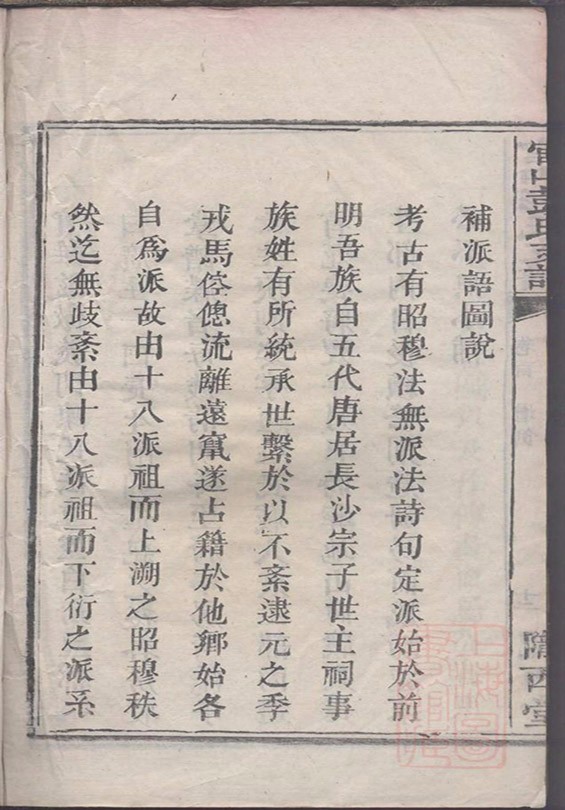 補派語圖說
考古有昭穆法無派法詩句定派始於前
明吾族自五代唐居長沙宗子世主祠事
族姓有所統承世繫於以不紊逮元之季
戎馬倥傯流離遠竄遂占籍於他鄉始各
自爲派故由十八派祖而上溯之昭穆秩
然迄無歧紊由十八派祖而下衍之派系